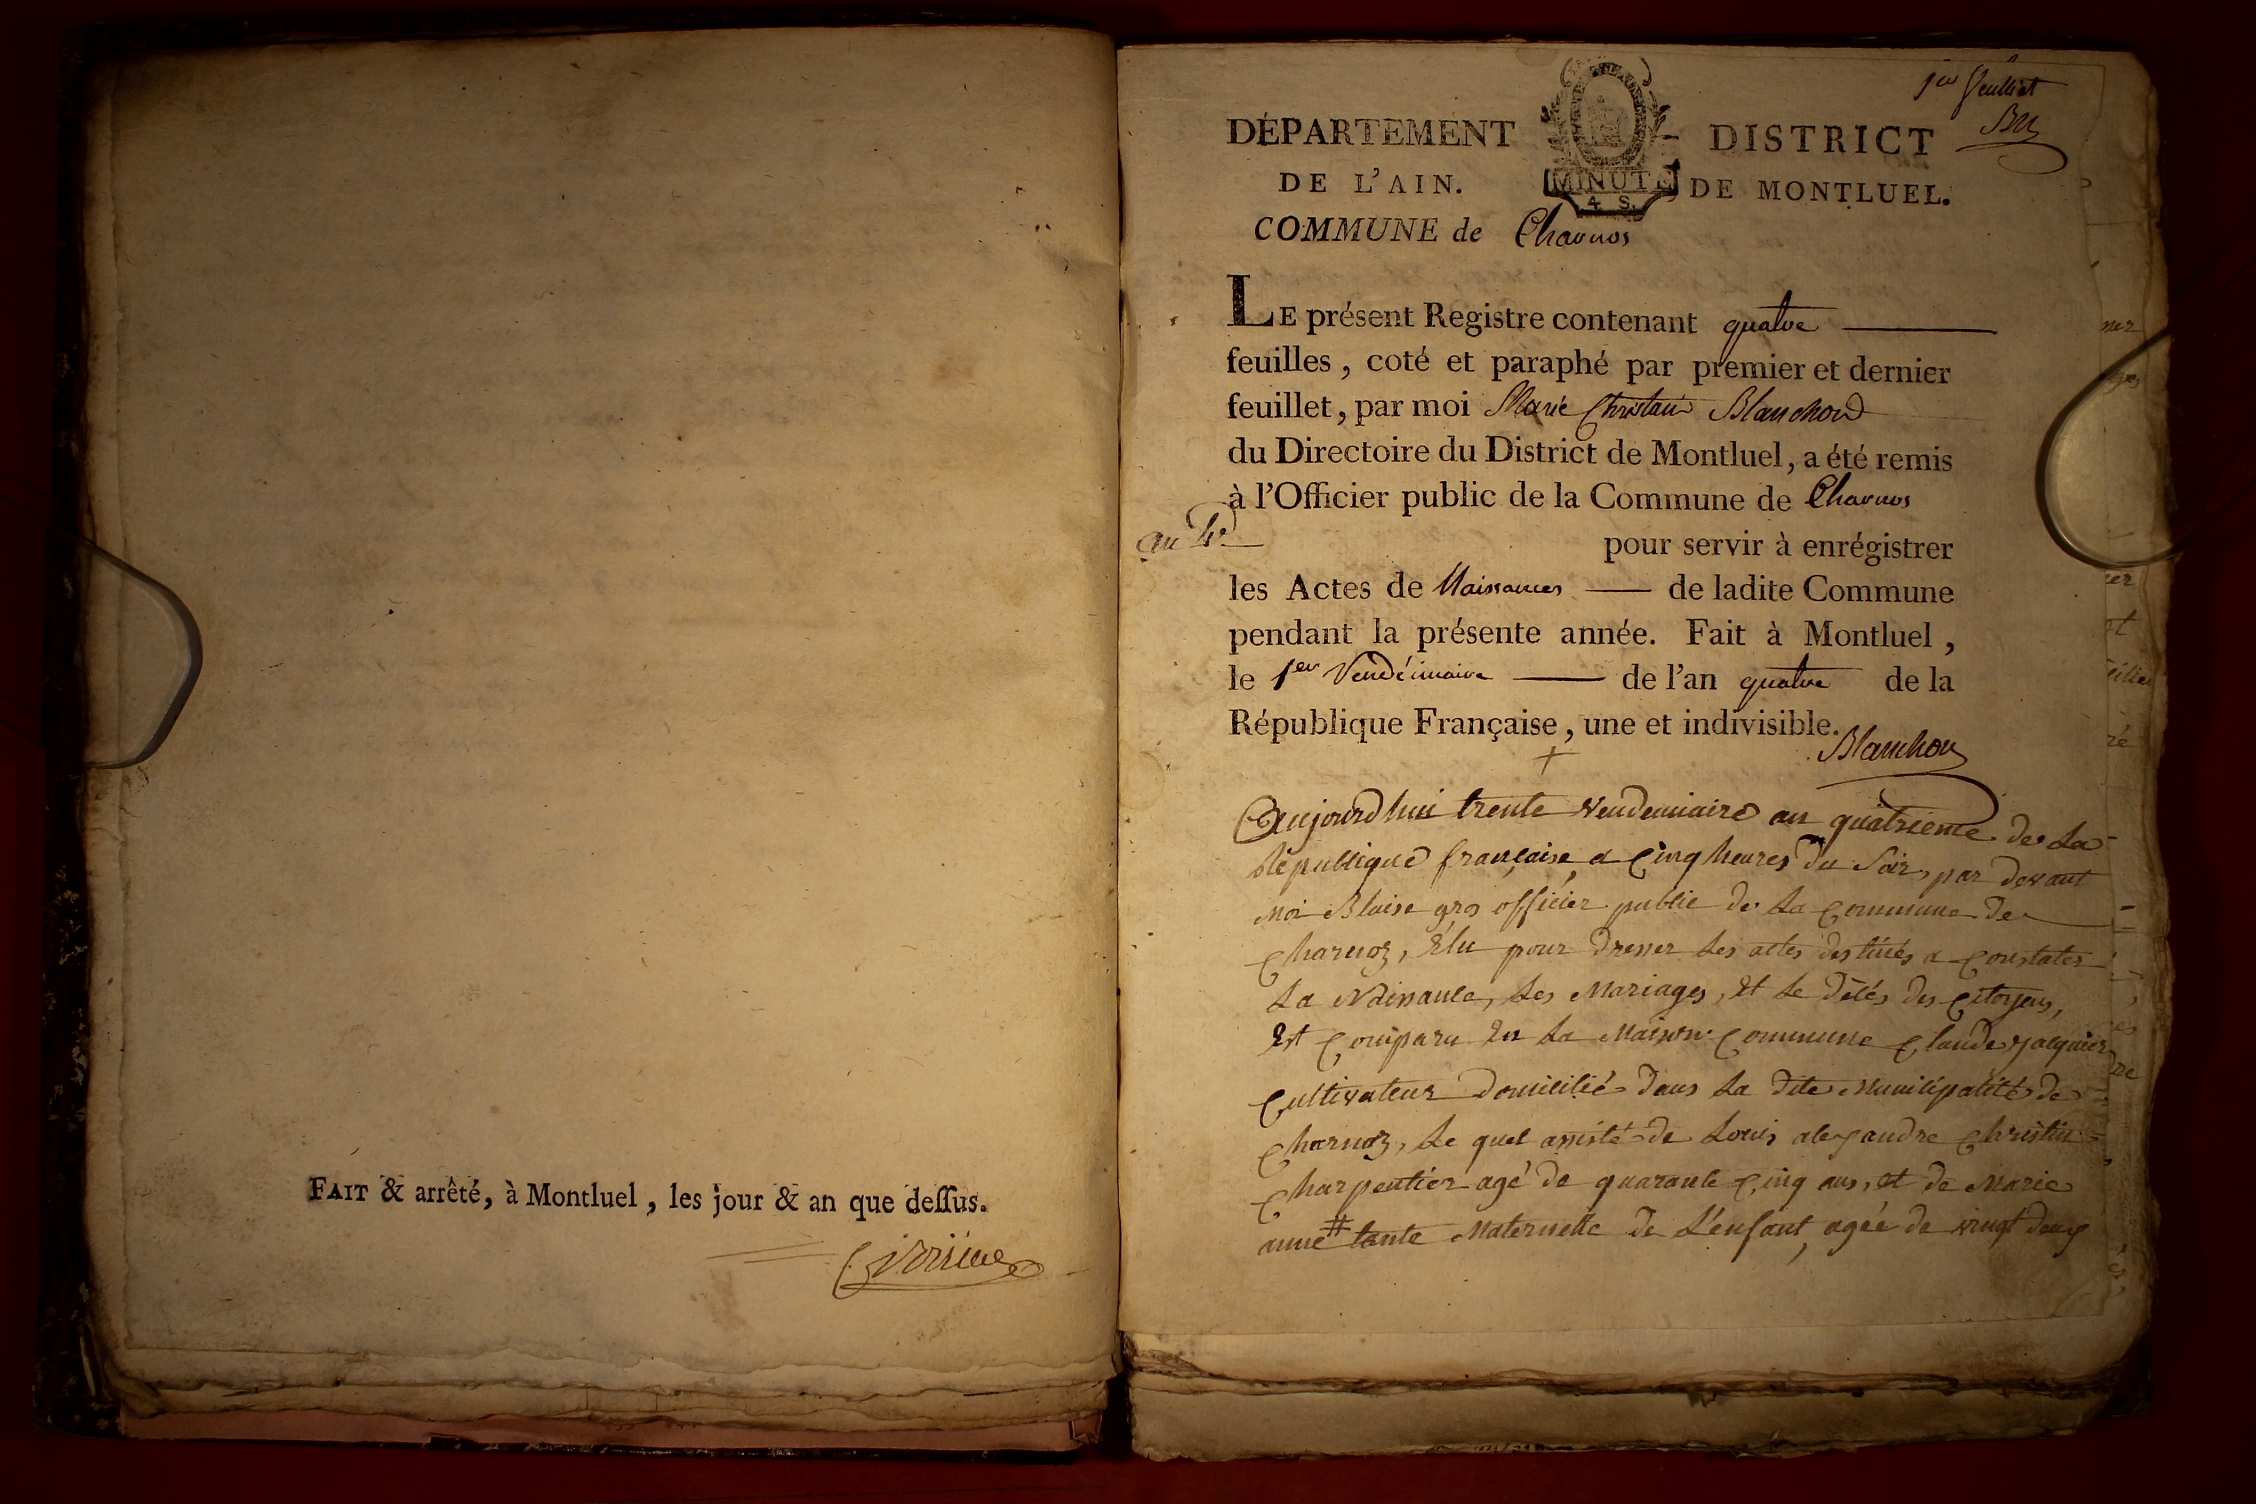 FAIT & arrêté, à Montluel, les jour & an que deſſus.
1er feuillet
DÉPARTEMENT
DE L'AIN.
MINUTE
4 S.
DISTRICT
DE MONTLUEL.
COMMUNE de Charnos
LE présent Registre contenant quatre
feuilles, coté et paraphé par premier et dernier
feuillet, par moi Marie Christian Blanchon
du Directoire du District de Montluel, a été remis
à l'Officier public de la Commune de Charnos
an 4e
pour servir à enrégistrer
les Actes de Naissances — de ladite Commune
pendant la présente année. Fait à Montluel,
le 1er Vendémiaire — de l'an quatre de la
République Française, une et indivisible.
Blanchon
Aujourd'hui trente vendemiaire an quatrieme de La
République française, a Cinq heures du Soir, par devant
Moi Blaise gros officier public de La Commune de
Charnoz, Élu pour dresser Les actes destinés a Constater
La Naissance, Les Mariages, Et Le Décés des Citoyens,
Est Comparu En La Maison Commune Claude jacquier
Cultivateur Domicilié dans La dite Municipalité de
Charnoz, Le quel assisté de Louis alexandre Christin
Charpentier agé de quarante Cinq ans, et de Marie
anne # tante Maternelle de L'enfant, agée de vingt deux